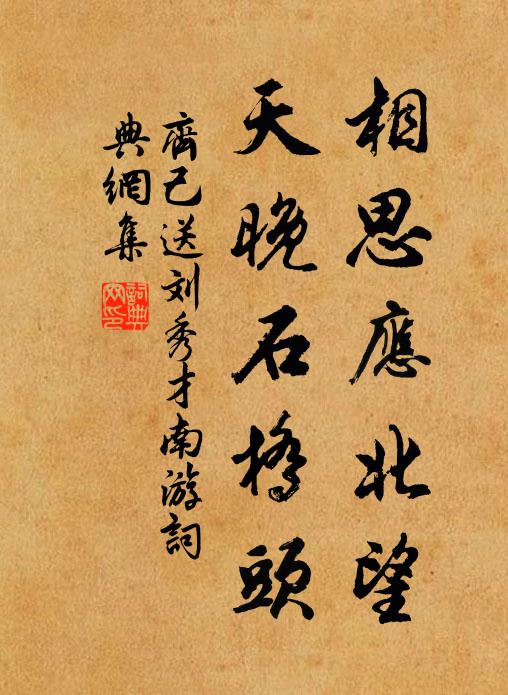 相思應北望
天晚石橋頭
齊己送刘秀才南游詞
典網集
詞典网印